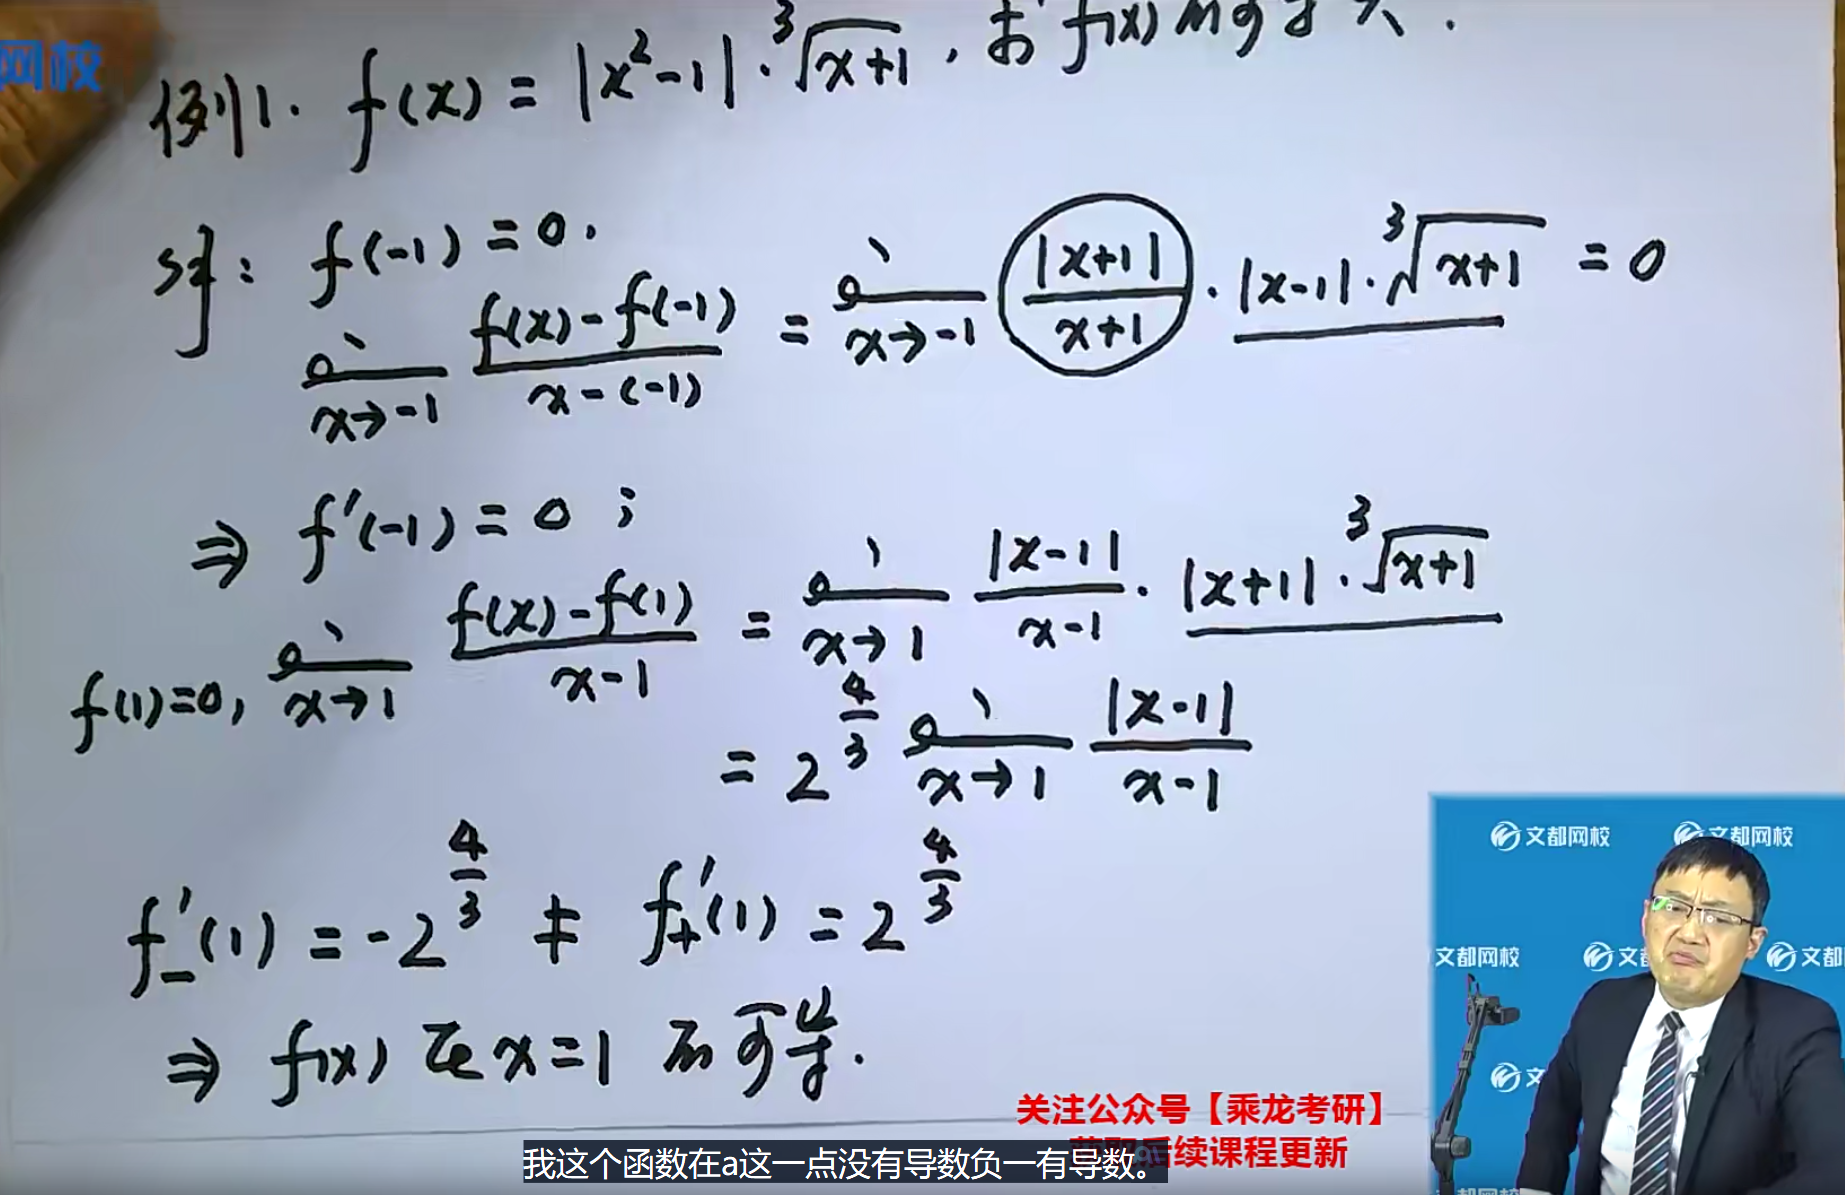 网校
例1. f(x) = |x²-1| · ∛(x+1), 求 f(x) 的可导点.
解: f(-1) = 0.
lim_{x→-1} (f(x)-f(-1))/(x-(-1)) = lim_{x→-1} |x+1|/(x+1) · |x-1| · ∛(x+1) = 0
⇒ f'(-1) = 0 ;
f(1)=0, lim_{x→1} (f(x)-f(1))/(x-1) = lim_{x→1} |x-1|/(x-1) · |x+1| · ∛(x+1)
= 2^{4/3} lim_{x→1} |x-1|/(x-1)
f'₋(1) = -2^{4/3} ≠ f'₊(1) = 2^{4/3}
⇒ f(x) 在 x=1 不可导.
文都网校 文都网校
文都网校 文都 文都
文
关注公众号【乘龙考研】
后续课程更新
我这个函数在a这一点没有导数负一有导数。